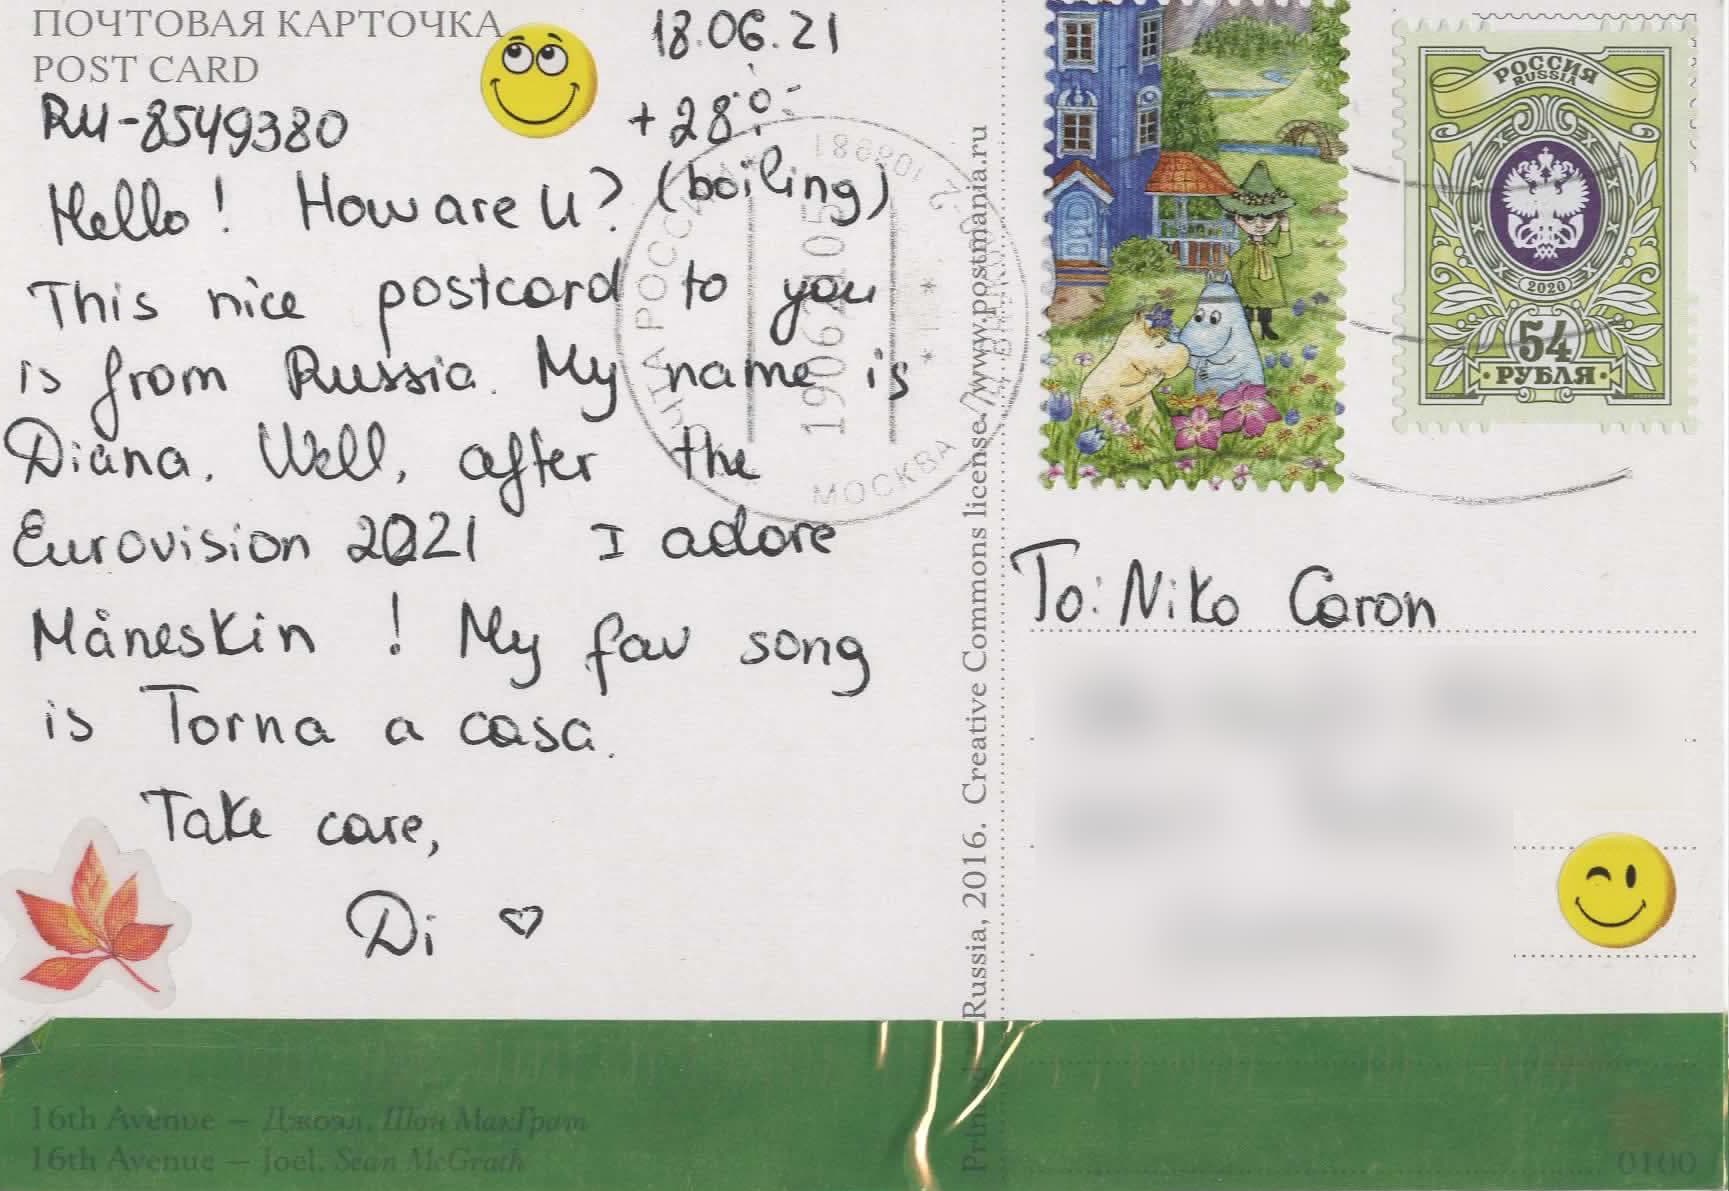 ПОЧТОВАЯ КАРТОЧКА
POST CARD
RU-8549380
18.06.21
+28°
(boiling)
Hello! How are U?
This nice postcard to you
is from Russia. My name is
Diana. Well, after the
Eurovision 2021 I adore
Måneskin! My fav song
is Torna a casa.
Take care,
Di ♡
16th Avenue – Джоэл, Шон МакГрат
16th Avenue – Joel, Sean McGrath
Russia, 2016. Creative Commons license/www.postmania.ru
РОССИЯ
RUSSIA
2020
54
РУБЛЯ
МОСКВА
To: Niko Caron
0100